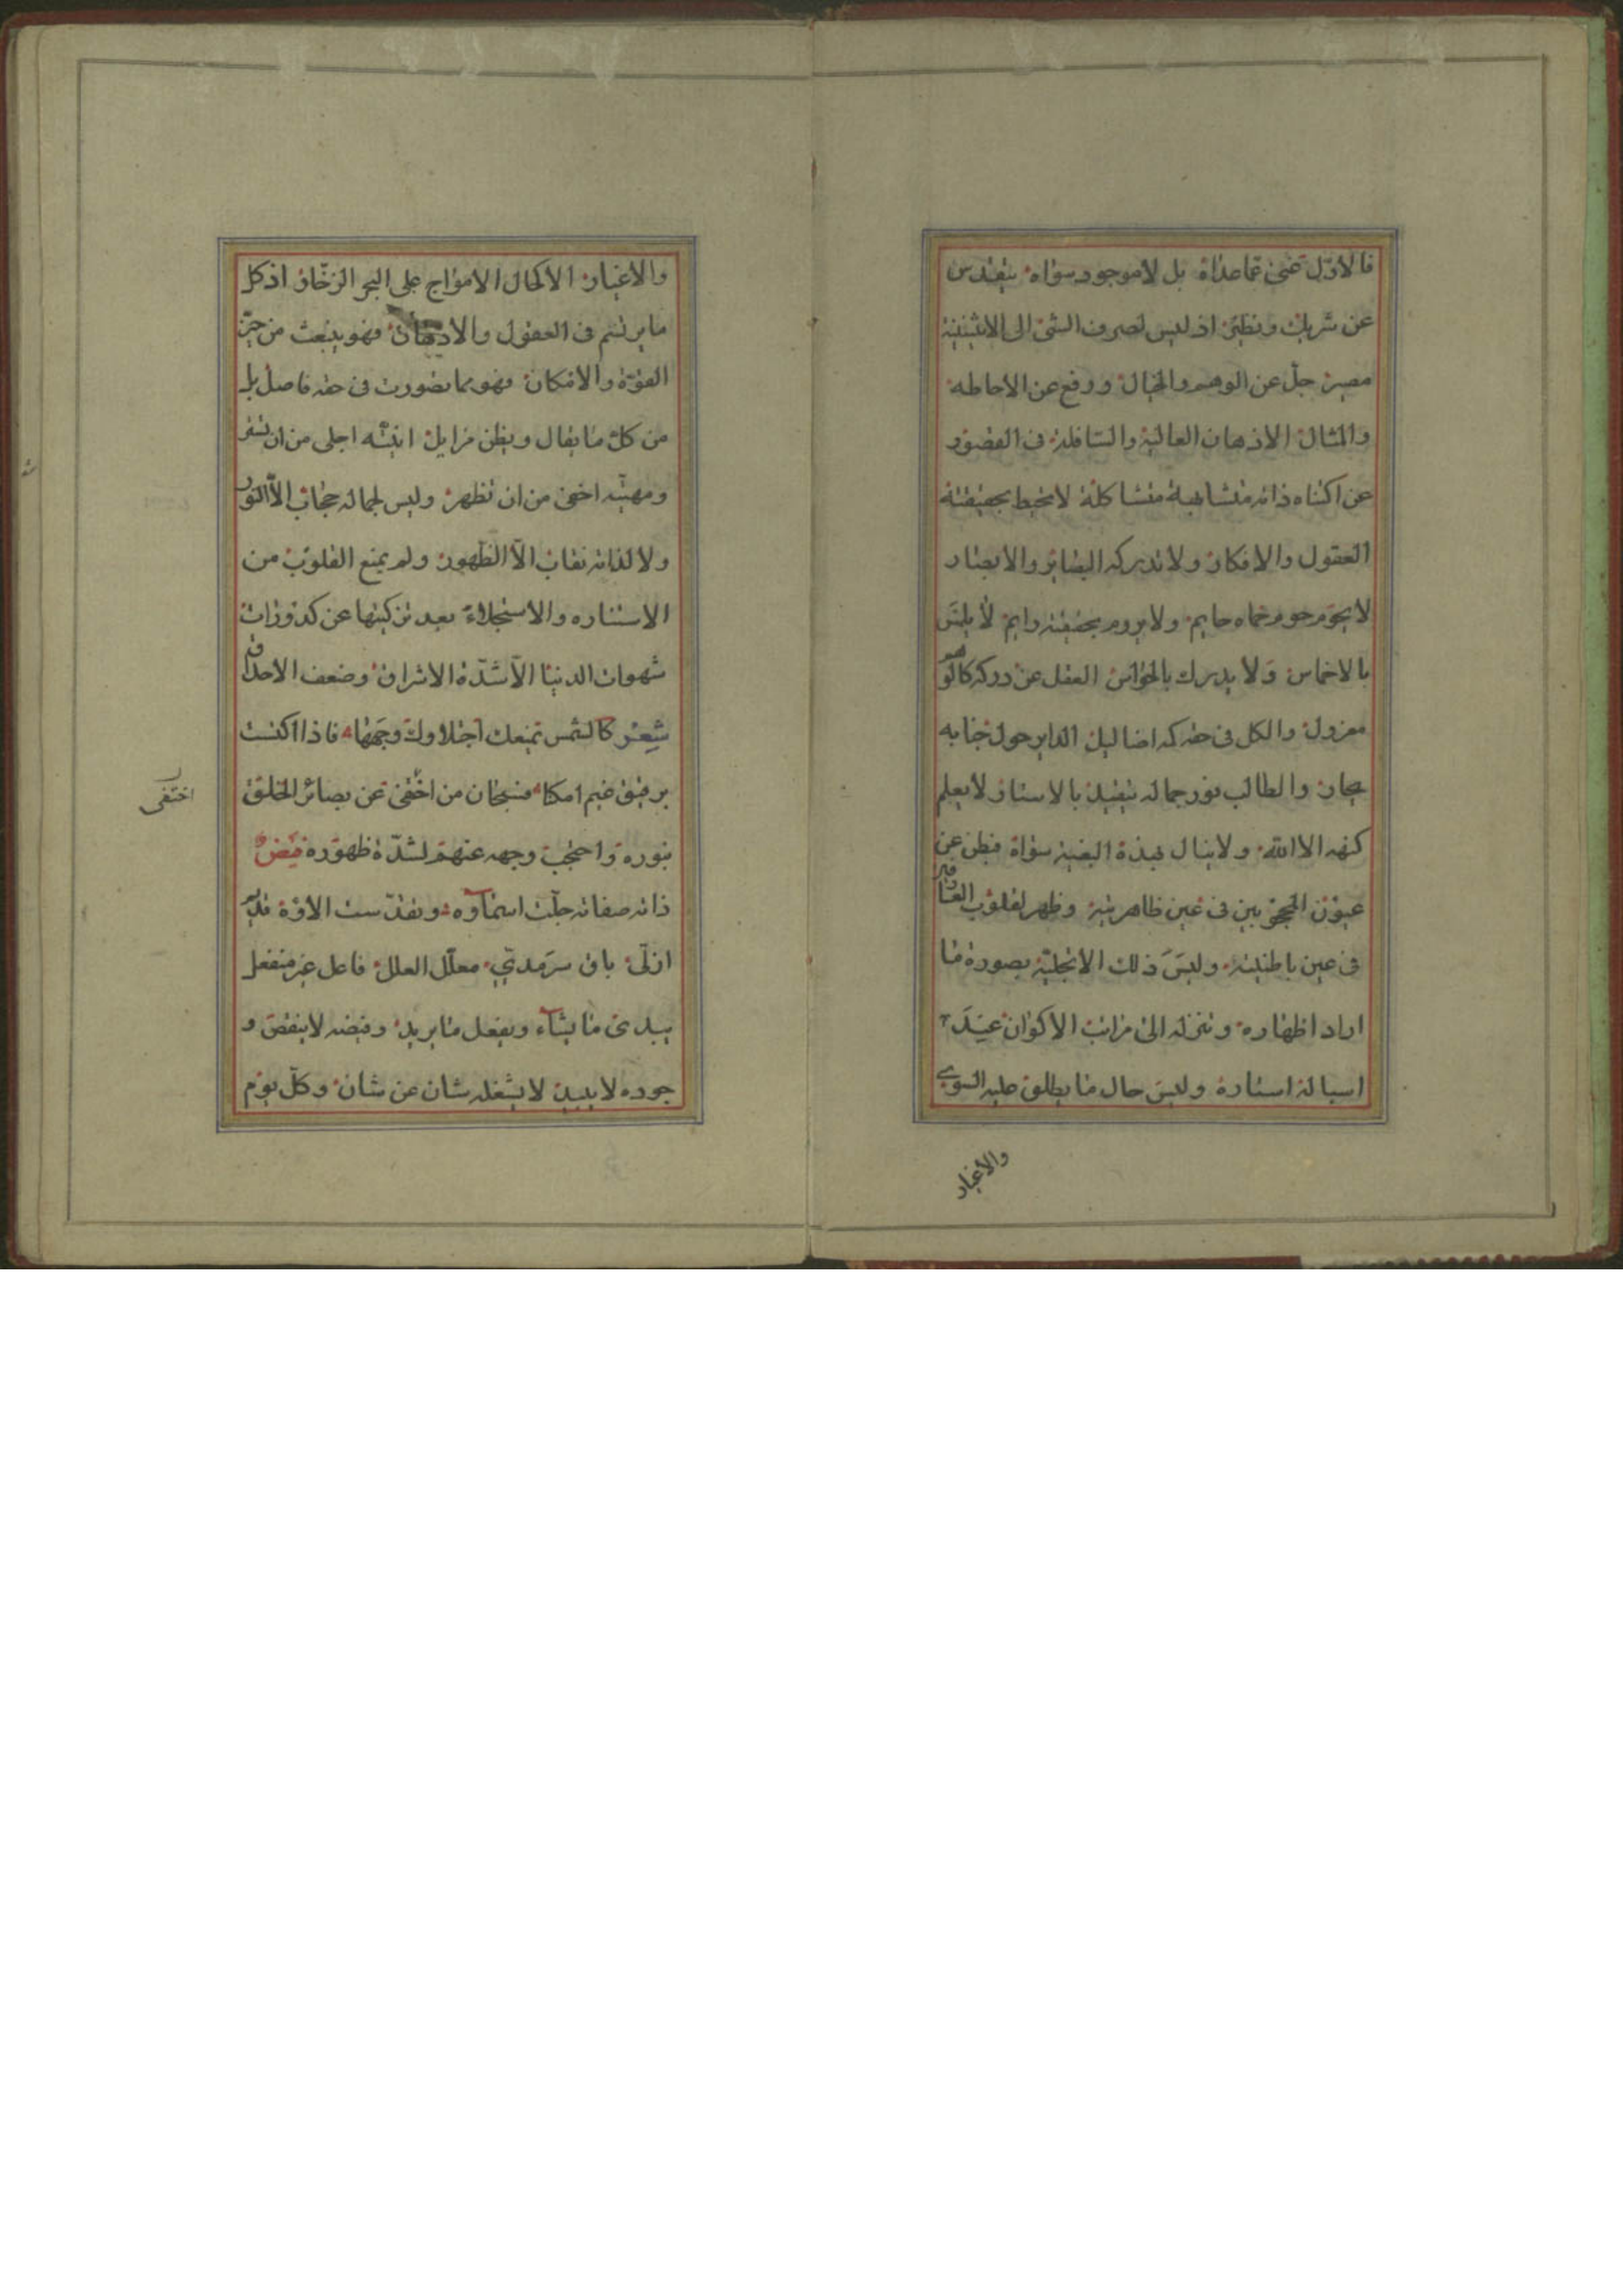 فالاول غنى عما عداه بل لا موجود سواه يتقدس
عن شريك ونظير اذ ليس لصرف الشئ الى الاثنينية
مصير جل عن الوهم والخيال ورفع عن الاحاطه
والمثال الاذهان العالية والسافلة فى القصور
عن اكتناه ذاته متشابهة متشاكلة لا تحيط بحقيقته
العقول والافكار ولا تدركه البصائر والابصار
لا يحوم حوم حماه حايم ولا يروم بحقيقته رايم لا يلتمس
بالاخماس ولا يدرك بالحواس العقل عن دركه كالوهم
معزول والكل فى حقه كه اضاليل الداير حول جنابه
حيار والطالب نور جماله يتقيد بالاستار لا يعلم
كنهه الا الله ولا ينال نبذة البغية سواه فبطن عن
عيون المحجوبين فى عين ظاهريته وظهر لقلوب العارفين
فى عين باطنيته وليس ذلك الا تجليه بصورة ما
اراد اظهاره وتنزله الى مراتب الاكوان عند
اسباله استاره وليس حال ما يطلق عليه السوى
والاغيار
والاغيار الا كحال الامواج على البحر الزخار اذ كل
ما يرتسم فى العقول والاذهان فهو ينبعث من حيز
القوة والامكان فهو مما تصورت فى حقه فاصل بل
من كل ما يقال ويظن مزايل انيته اجلى من ان تستر
ومهيته اخفى من ان تظهر وليس لجماله حجاب الا النور
ولا لذاته نقاب الا الظهور ولم يمنع القلوب من
الاستناره والاستجلاء بعد تزكيتها عن كدورات
شهوات الدنيا الا شدة الاشراق وضعف الاحداق
شعر كالشمس تمنعك اجتلاوك وجهها فاذا اكتست
برقيق غيم امكنا فسبحان من اختفى عن بصائر الخلق
بنوره واحتجب وجهه عنهم لشدة ظهوره فيض
ذاته صفاته جلت اسماوه وتقدست الاوه قديم
ازلى باق سرمدى معلل العلل فاعل غير منفعل
يبدئ ما يشاء ويفعل ما يريد وفيضه لا ينقص و
جوده لا يبيد لا يشغله شان عن شان وكل يوم
اختفى